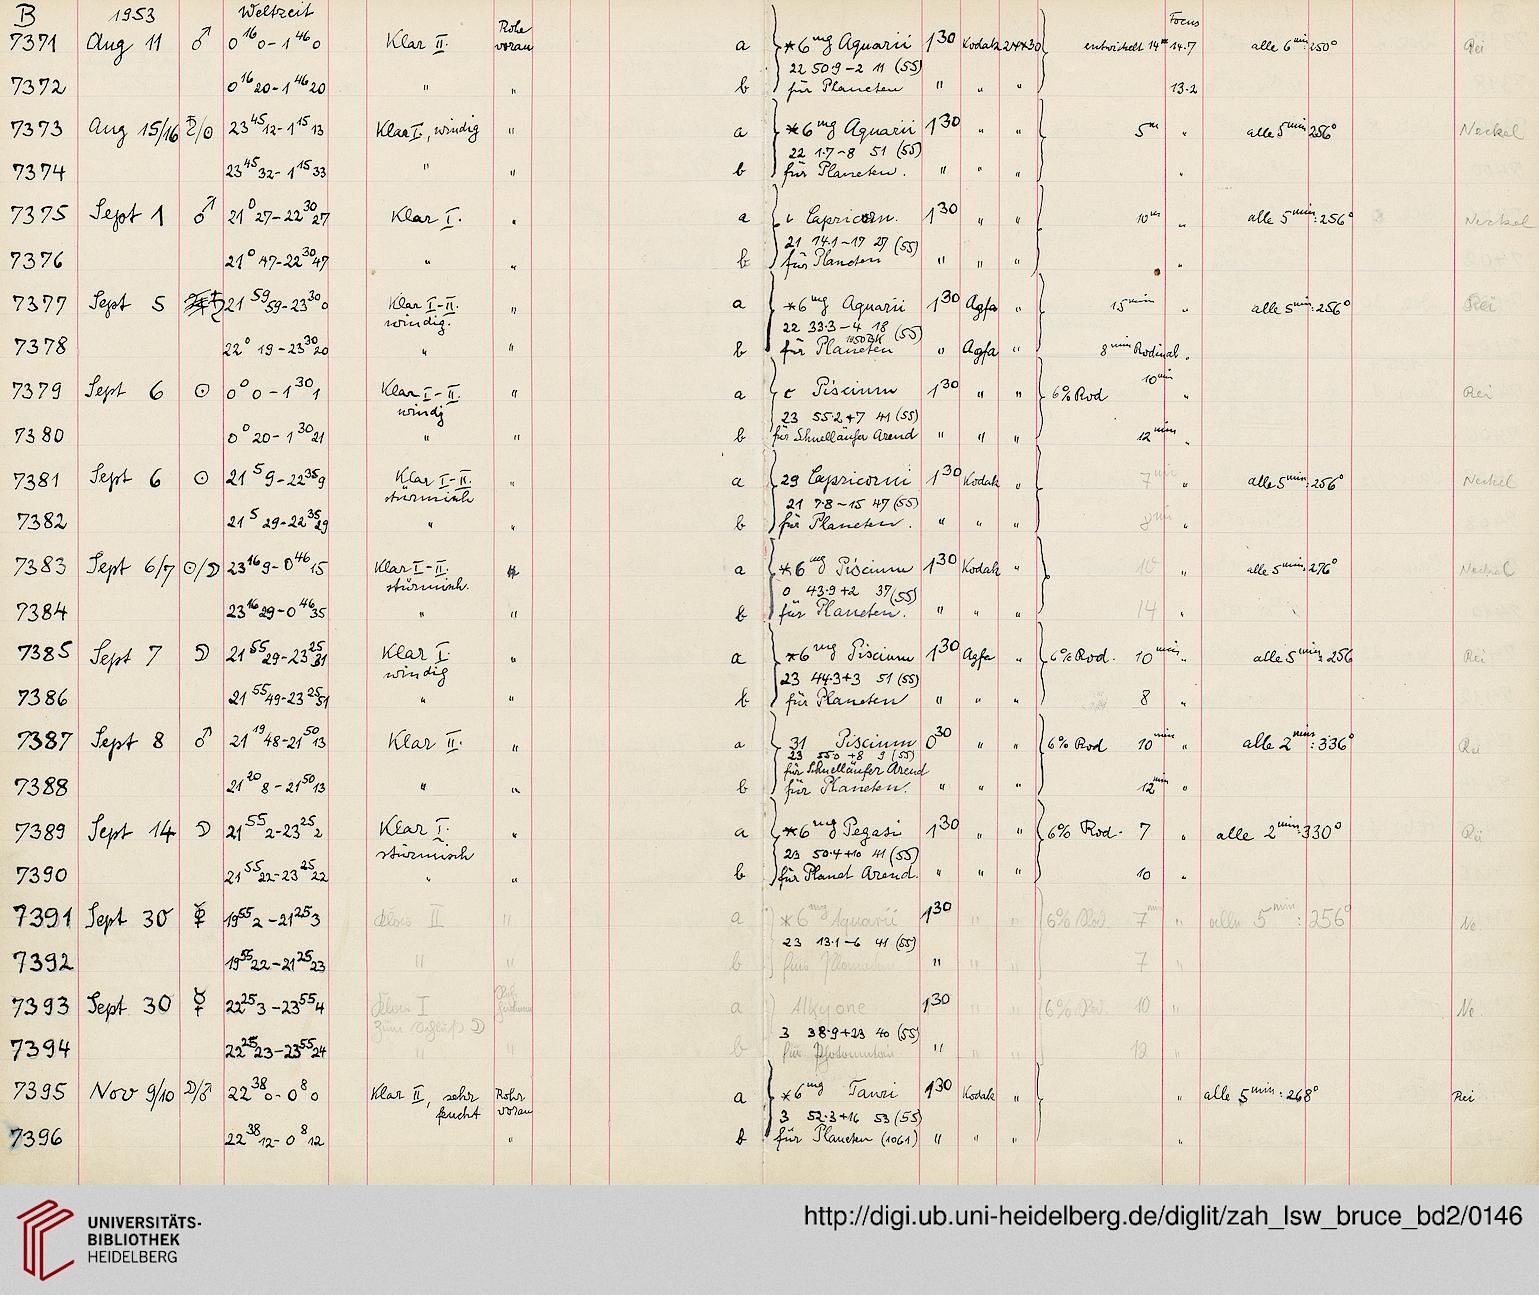 B 1953 Weltzeit Focus
7371 Aug 11 ♂ 0 16 0 – 1 46 0 Klar II. Rohr voran a *6 mg Aquarii 1 30 Kodak 24×30 entwickelt 14 m 14.7 alle 6 min: 250° Rei
22 50.9 – 2 11 (55)
7372 0 16 20 – 1 46 20 " " b für Planeten " " " 13.2
7373 Aug 15/16 ♄/☉ 23 45 12 – 1 15 13 Klar I, windig " a *6 mg Aquarii 1 30 " " 5 m " alle 5 min 256° Neckel
22 1.7 – 8 51 (55)
7374 23 45 32 – 1 15 33 " " b für Planeten. " " " "
7375 Sept 1 ♂ 21 0 27 – 22 30 27 Klar I. " a ι Capricorn. 1 30 " " 10 m " alle 5 min: 256° Neckel
21 14.1 – 17 27 (55)
7376 21 0 47 – 22 30 47 " " b für Planeten " " " "
7377 Sept 5 ♄ 21 59 59 – 23 30 0 Klar I–II. windig. " a *6 mg Aquarii 1 30 Agfa " 15 min " alle 5 min: 256° Rei
22 33.3 – 4 18 (55)
7378 22 0 19 – 23 30 20 " " b für Planeten " Agfa " 8 min Rodinal "
7379 Sept 6 ☉ 0 0 0 – 1 30 1 Klar I–II. windig " a c Piscium 1 30 " " 6% Rod 10 min " Rei
23 55.2 + 7 41 (55)
7380 0 0 20 – 1 30 21 " " b für Schnelläufer Arend " " " 12 min "
7381 Sept 6 ☉ 21 5 9 – 22 35 9 Klar I–II. stürmisch " a 29 Capricorni 1 30 Kodak " 7 min " alle 5 min: 256° Neckel
21 7.8 – 15 47 (55)
7382 21 5 29 – 22 35 29 " " b für Planeten. " " " 8 min "
7383 Sept 6/7 ☉/☽ 23 16 9 – 0 46 15 Klar I–II. stürmisch. " a *6 mg Piscium 1 30 Kodak " 10 " alle 5 min: 276° Neckel
0 43.9 + 2 37 (55)
7384 23 16 29 – 0 46 35 " " b für Planeten. " " " 14 "
7385 Sept 7 ☽ 21 55 29 – 23 25 31 Klar I. windig " a *6 mg Piscium 1 30 Agfa " 6% Rod. 10 min " alle 5 min: 256 Rei
23 44.3 + 3 51 (55)
7386 21 55 49 – 23 25 51 " " b für Planeten " " " 8 "
7387 Sept 8 ♂ 21 19 48 – 21 50 13 Klar II. " a 31 Piscium 0 30 " " 6% Rod 10 min " alle 2 min: 336° Rei
23 55.0 + 8 9 (55)
für Schnelläufer Arend
7388 21 20 8 – 21 50 13 " " b für Planeten. " " " 12 min "
7389 Sept 14 ☽ 21 55 2 – 23 25 2 Klar I. stürmisch " a *6 mg Pegasi 1 30 " " 6% Rod. 7 " alle 2 min: 330° Rei
23 50.4 + 10 41 (55)
7390 21 55 22 – 23 25 22 " " b für Planet Arend. " " " 10 "
7391 Sept 30 ☿ 19 55 2 – 21 25 3 Klar II " a *6 mg Aquarii 1 30 " " 6% Rod. 7 min " alle 5 min: 256° Ne.
23 13.1 – 6 41 (55)
7392 19 55 22 – 21 25 23 " " b " " " 7 "
7393 Sept 30 ☿ 22 25 3 – 23 55 4 Klar I a Alkyone 1 30 " " 6% Rod. 10 " Ne.
zum Schluß ☽ 3 38.9 + 23 40 (55)
7394 22 25 23 – 23 55 24 " " b für " " " 12 "
7395 Nov 9/10 ☽/♂ 22 38 0 – 0 8 0 Klar II, sehr feucht Rohr voran a *6 mg Tauri 1 30 Kodak " " alle 5 min: 268° Rei
3 52.3 + 16 53 (55)
7396 22 38 12 – 0 8 12 " b für Planeten (1061) " " " "
UNIVERSITÄTS-
BIBLIOTHEK
HEIDELBERG
http://digi.ub.uni-heidelberg.de/diglit/zah_lsw_bruce_bd2/0146